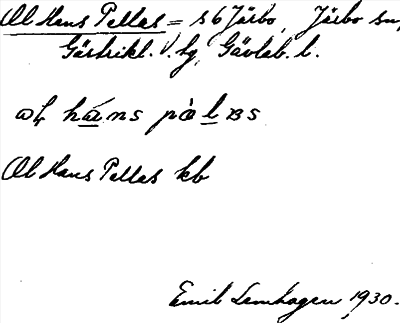 Ol Hans Pellas = s 6 Järbo, Järbo sn,
Gästrikl. V. hg, Gävleb. l.
pà l ʙs
Ol Hans Pellas kb
Emil Lenhagen 1930.